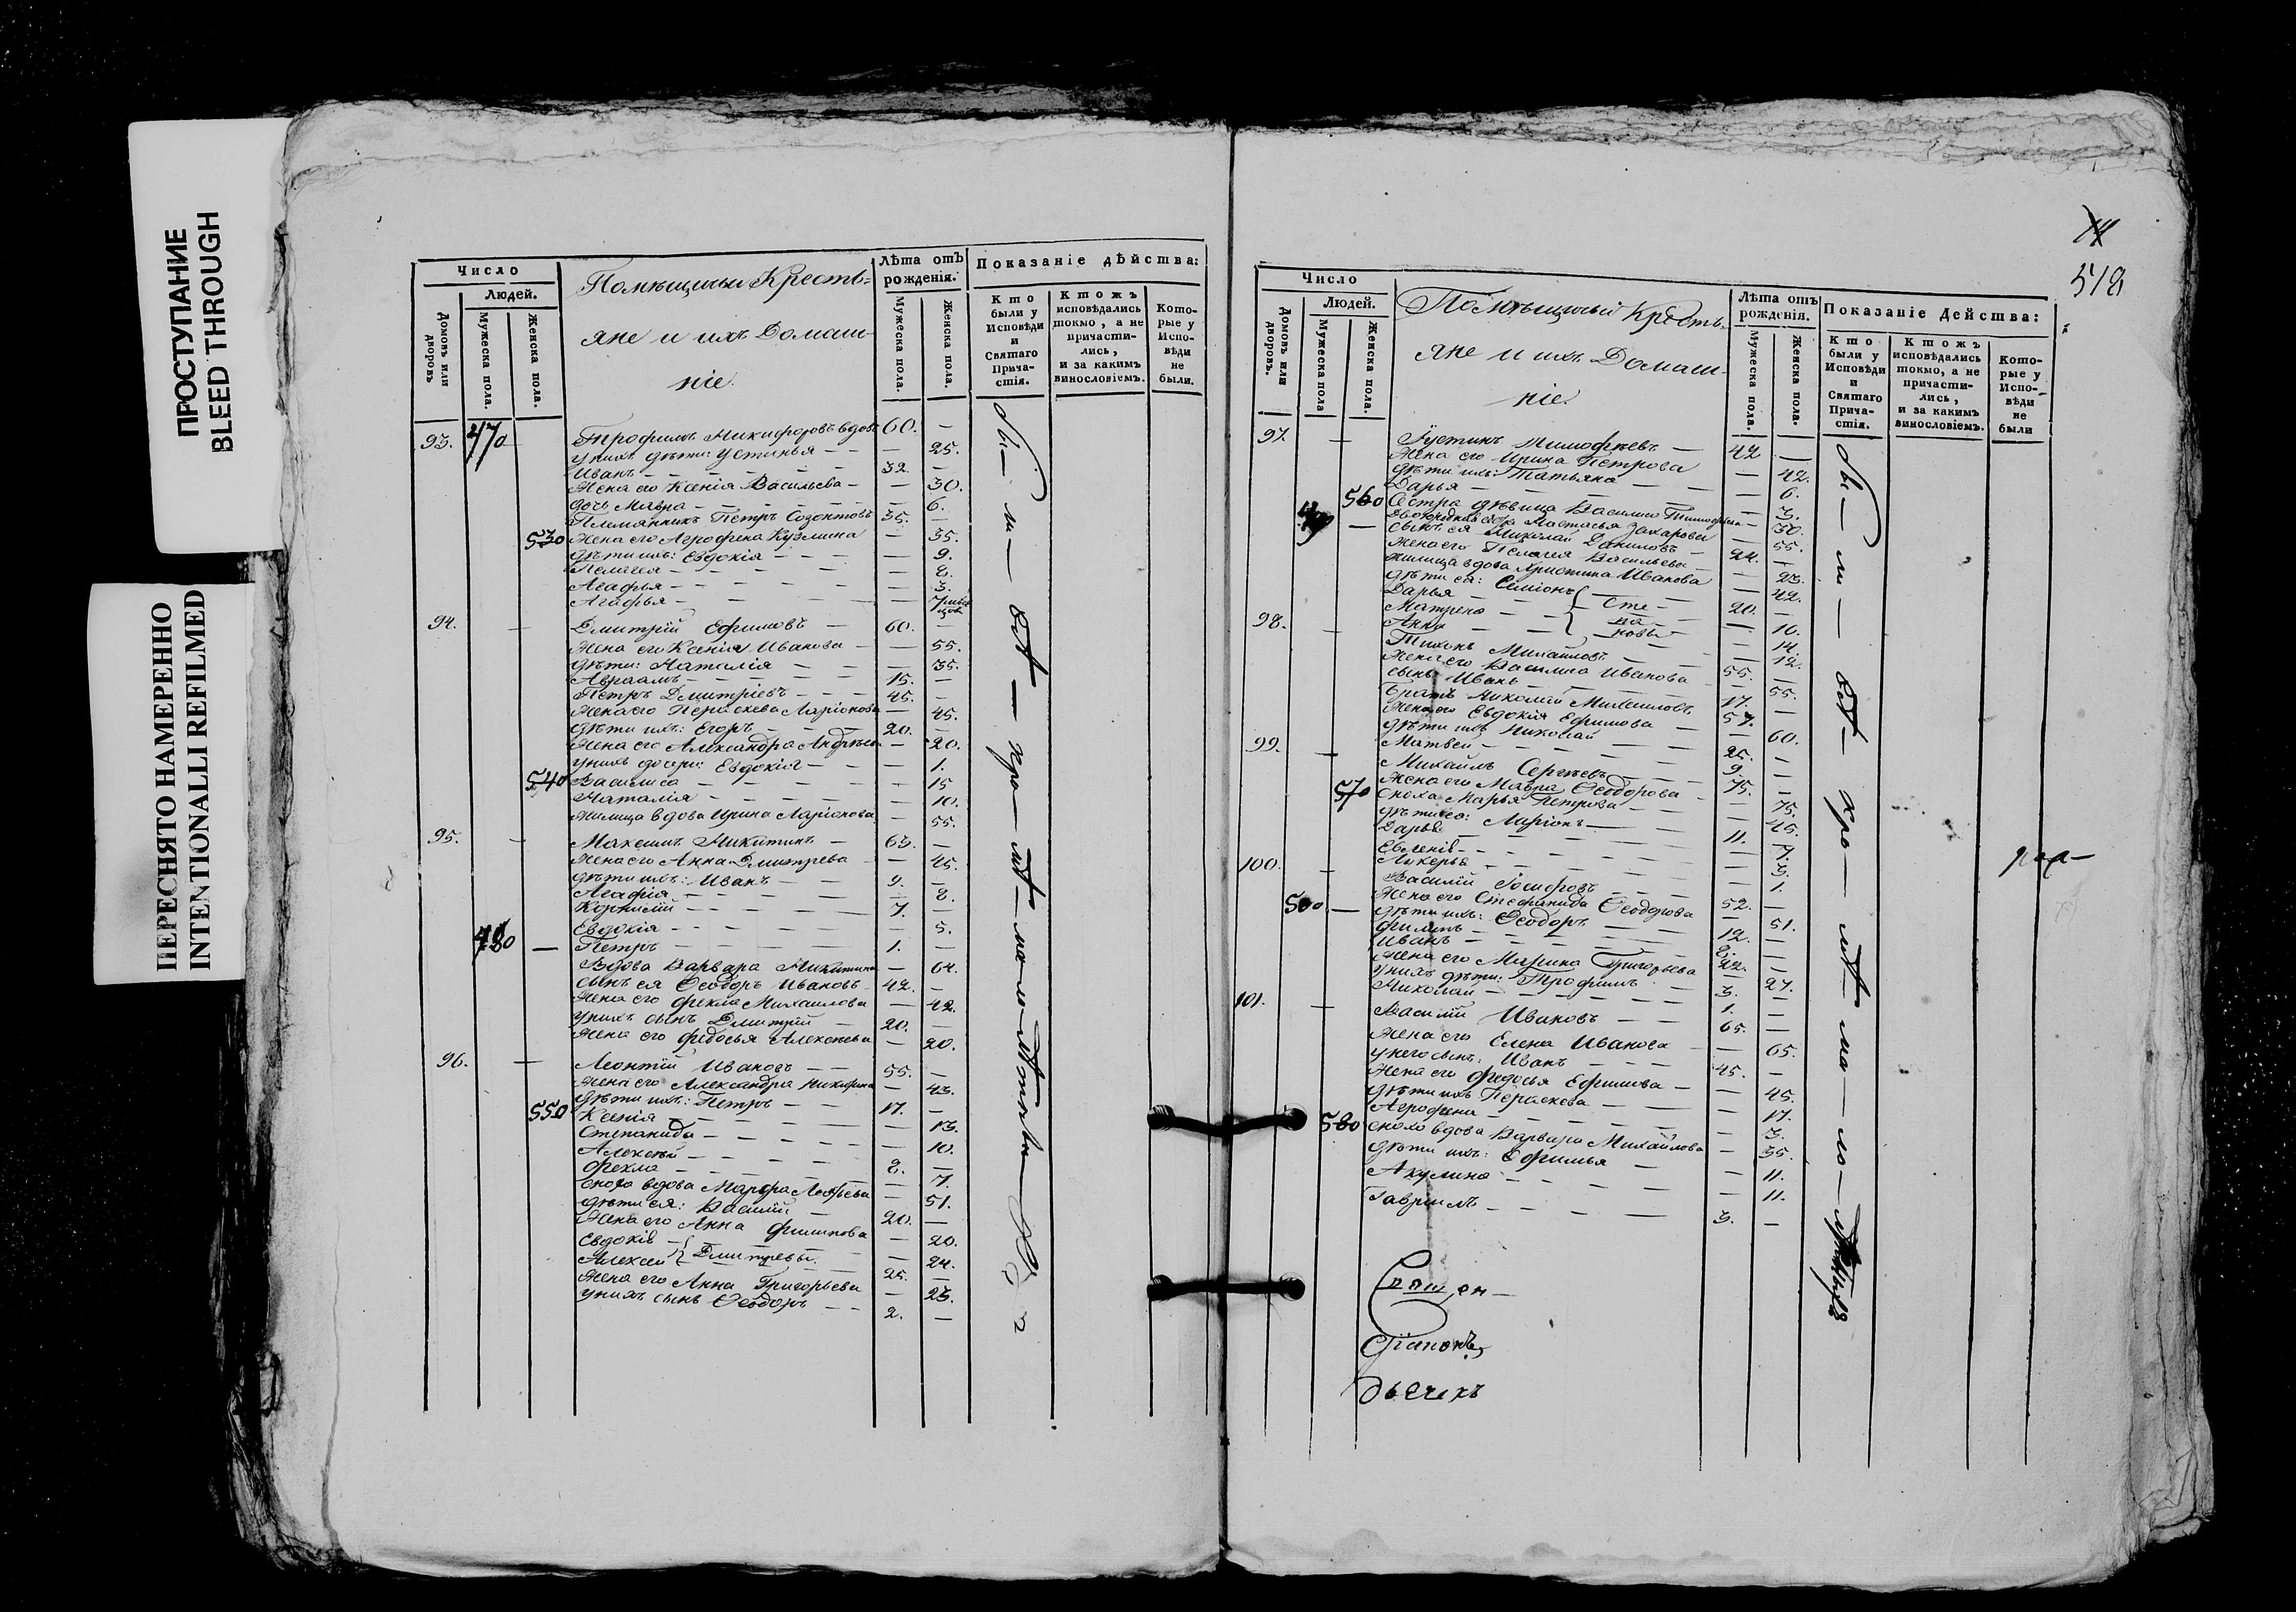 ПРОСТУПАНИЕ
BLEED THROUGH
ПЕРЕСНЯТО НАМЕРЕННО
INTENTIONALLI REFILMED
Число
Людей.
Домовъ или дворовъ
Мужеска пола.
Женска пола.
Помѣщичьи Кресть-
яне и ихъ Домаш-
ніе.
Лѣта отъ рожденія.
Мужеска пола.
Женска пола.
Показаніе дѣйства:
Кто были у Исповѣди и Святаго Прича-стія.
Ктожъ исповѣдались токмо, а не причасти-лись, и за какимъ винословіемъ.
Кото-рые у Испо-вѣди не были.
93. 470 Трофимъ Никифоровъ вдовъ 60. —
у нихъ дѣти: Устинья — 25.
Иванъ 32. —
Жена его Ксенія Васильева — 30.
дочь Мавра — 6.
Племянникъ Петръ Созонтовъ 35. —
530 Жена его Агрофена Кузмина — 35.
дѣти ихъ: Евдокія — 9.
Пелагея — 8.
Агафья — 3.
Агафья — 7
94. Дмитрій Ефимовъ 60. —
Жена его Ксенія Иванова — 55.
дѣти: Наталія — 35.
Авраамъ 15. —
Петръ Дмитріевъ 45. —
Жена его Пераскева Ларіонова — 45.
дѣти ихъ: Егоръ 20. —
Жена его Александра Андрѣева — 20.
у нихъ дочери: Евдокія — 1.
540 Василиса — 15
Наталія — 10.
Жилица вдова Ирина Ларіонова — 55.
95. Максимъ Никитинъ 63. —
Жена его Анна Дмитрева — 45.
дѣти ихъ: Иванъ 9. —
Агафія — 8.
Корнилій 7. —
Евдокія — 5.
480 — Петръ 1. —
Вдова Варвара Никитина — 64.
сынъ ея Ѳеодоръ Ивановъ 42. —
Жена его Фекла Михаилова — 42.
у нихъ сынъ Дмитрій 20. —
Жена его Федосья Алексѣева — 20.
96. Леонтій Ивановъ 55. —
Жена его Александра — 43.
дѣти ихъ: Петръ 17. —
550 Ксенія — 13.
Степанида — 10.
Алексѣй 8. —
Фекла — 7.
сноха вдова Марфа — 51.
дѣти ея: Василій 20. —
Жена его Анна Филипова — 20.
Евдокія — 24.
Алексей Дмитревы. 25. —
Жена его Анна Григорьева — 23.
у нихъ сынъ Ѳеодоръ 2. —
бы — ли — всѣ —
518
Число
Людей.
Домовъ или дворовъ.
Мужеска пола
Женска пола.
Помѣщичьи Кресть-
яне и ихъ Домаш-
ніе.
Лѣта отъ рожденія.
Мужеска пола.
Женска пола.
Показаніе Действа:
Кто были у Исповѣди и Святаго Прича-стія.
Ктожъ исповѣдались токмо, а не причасти-лись, и за какимъ винословіемъ.
Кото-рые у Испо-вѣди не были
97. Іустинъ Тимофѣевъ 42 —
Жена его Ирина Петрова — 42.
дѣти ихъ: Татьяна — 6.
Дарья — 3.
560 Сестра дѣвица Василиса — 30.
Настасья Захарова — 55.
сынъ ея Николай Даниловъ 24. —
Жена его Пелагея Васильева — 23.
жилица вдова Христина Иванова — 42.
дѣти ея: Симіонъ 20. —
Дарья — 16.
Матрена — 14.
Анна — 12.
98. Тихонъ Михайловъ 55. —
Жена его Василиса Иванова — 55.
сынъ Иванъ 17. —
братъ Николай Михаиловъ 57. —
Жена его Евдокія Ефимова — 60.
дѣти ихъ Николай 25. —
Матвей 9. —
99. Михаилъ Сергѣевъ 75. —
Жена его Мавра Ѳеодорова — 75.
570 сноха Марья Петрова — 45.
дѣти ея: Ларіонъ 11. —
Дарья — 7.
Евгенія — 3.
Лукерья — 1.
100. Василій 52. —
Жена его Стефанида Ѳеодорова — 51.
500 — дѣти ихъ: Ѳеодоръ 12. —
Филипъ 8. —
Иванъ 22. —
Жена его Марина Григорьева — 27.
у нихъ дѣти: Трофимъ 3. —
Николай 1. —
101. Василій Ивановъ 65. —
Жена его Елена Иванова — 65.
у него сынъ: Иванъ 45. —
Жена его Федосья Ефимова — 45.
дѣти ихъ Пераскева — 17.
Агрофена — 3.
580 сноха вдова Варвара Михайлова — 35.
дѣти ихъ: Ефимья — 11.
Акулина — 11.
Гавриилъ 3. —
бы — ли — всѣ —